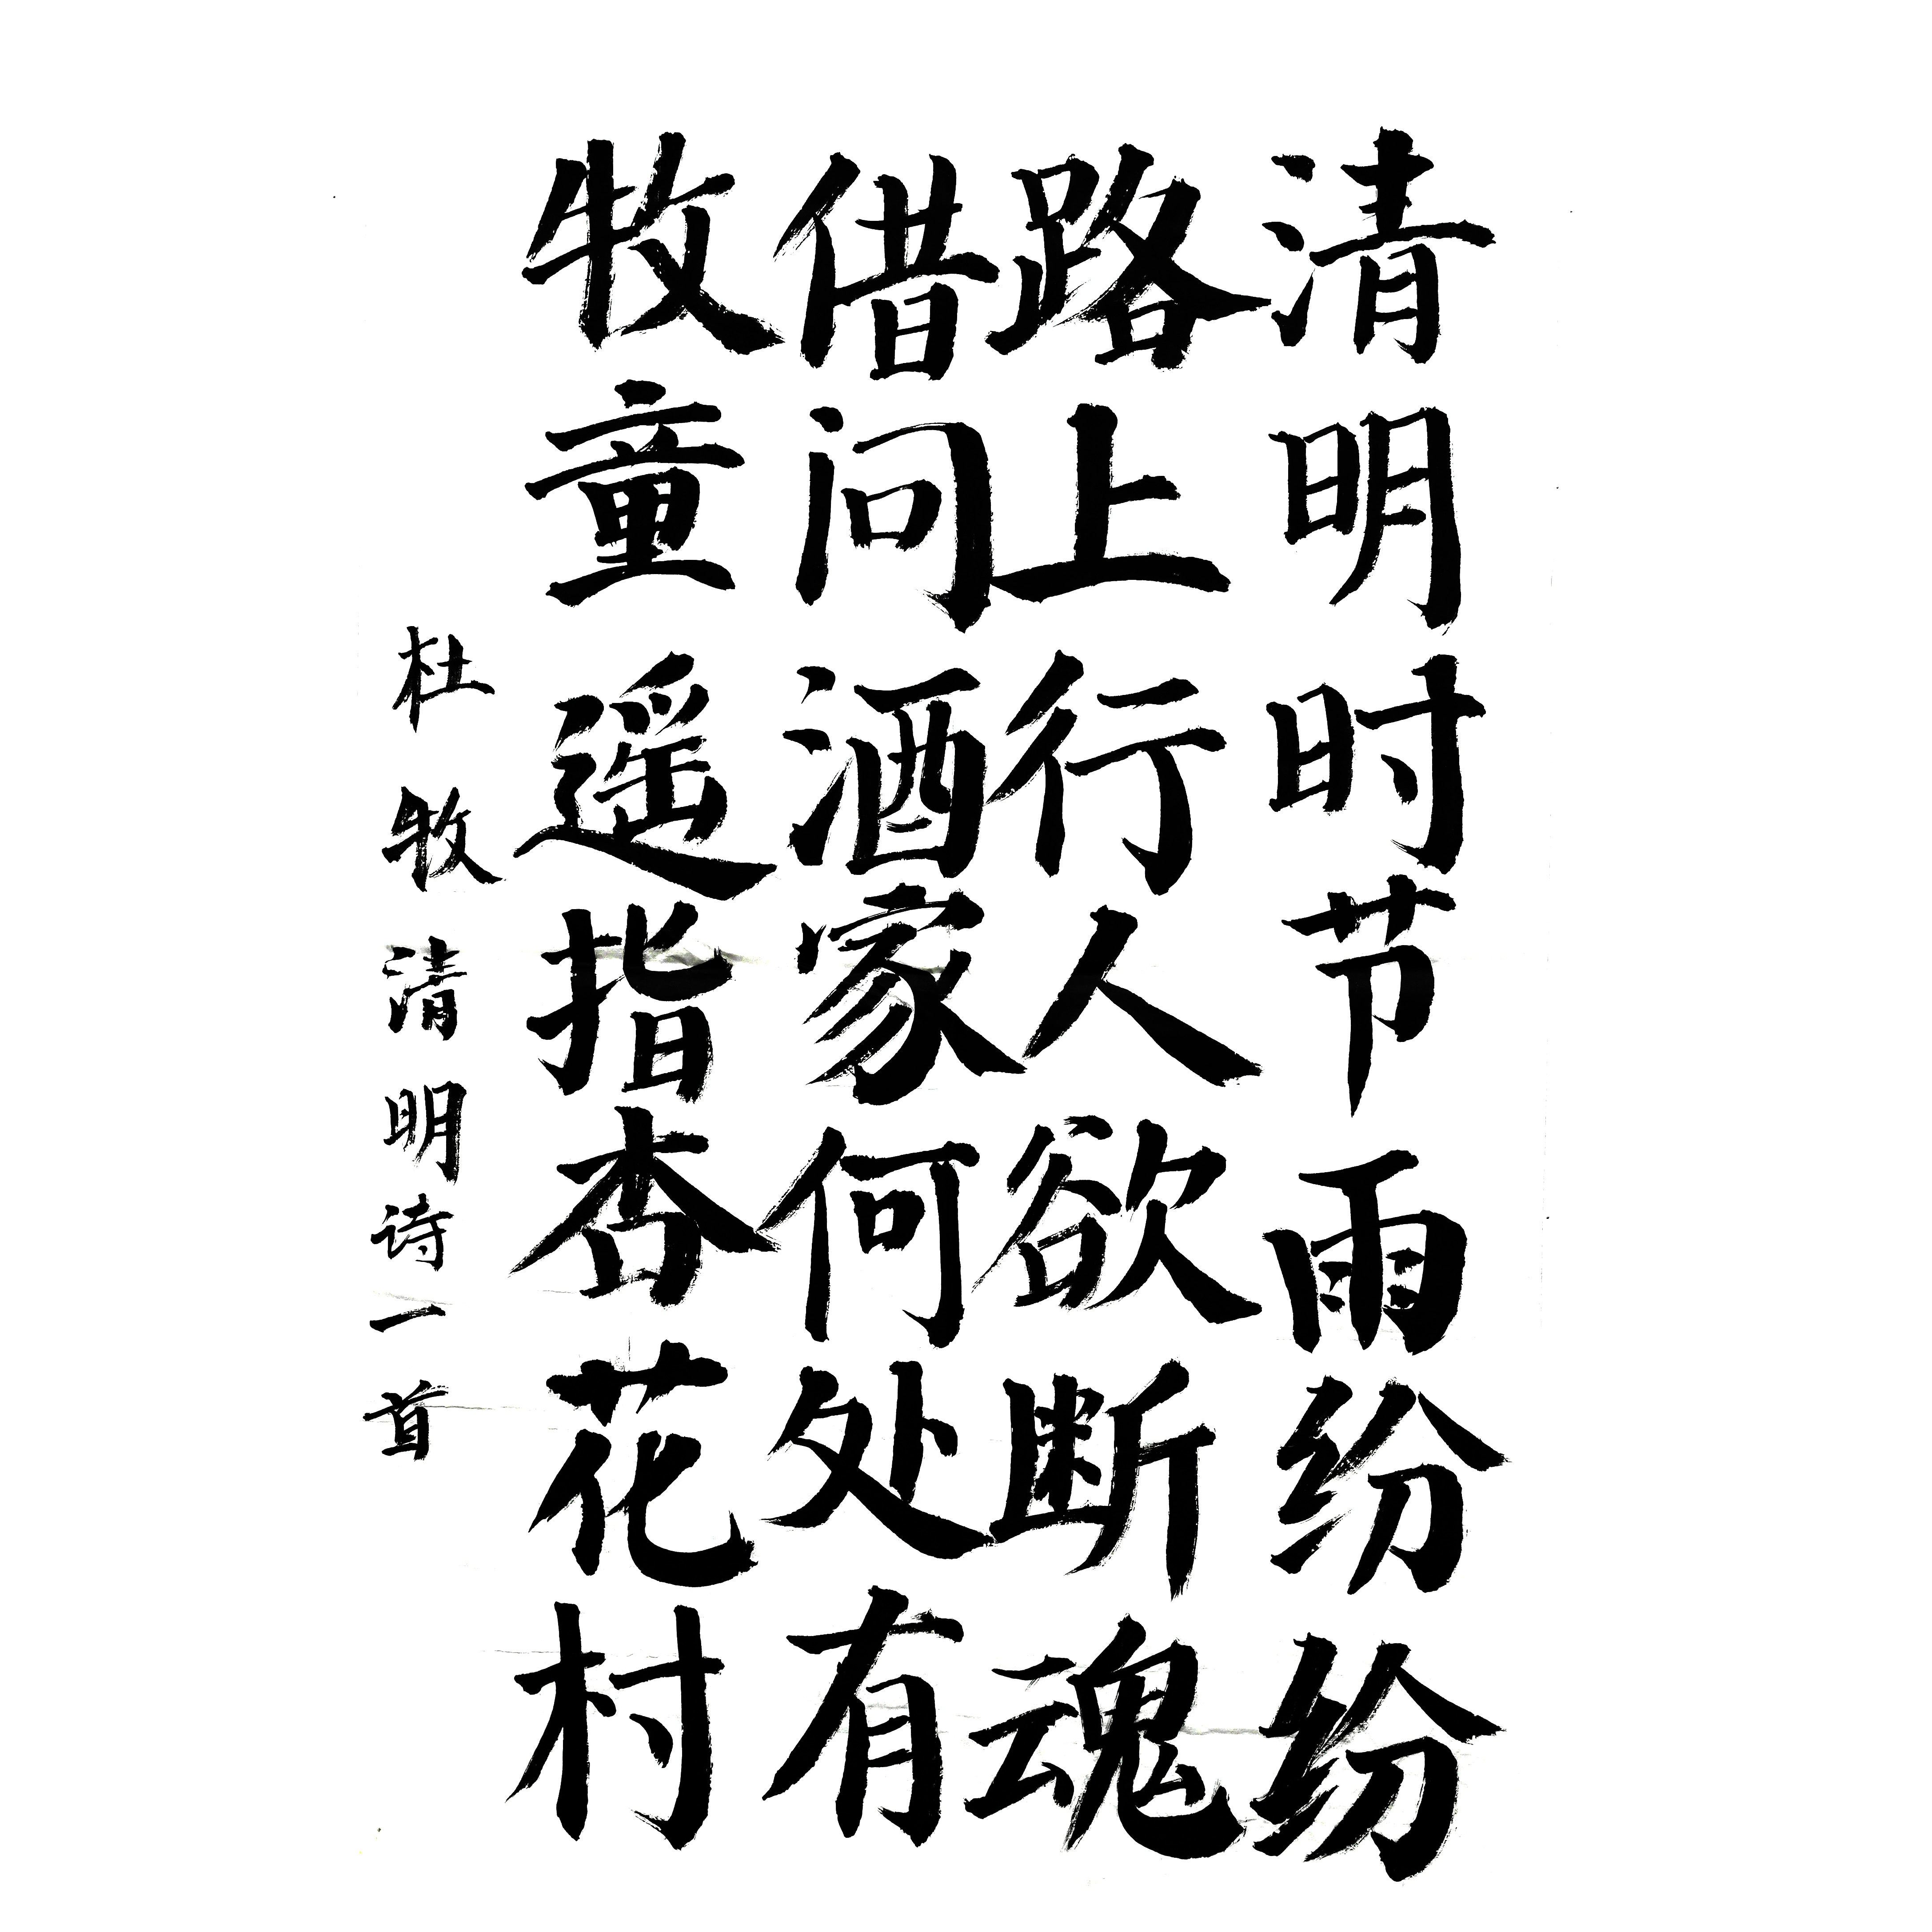 清明时节雨纷纷
路上行人欲断魂
借问酒家何处有
牧童遥指杏花村
杜牧清明诗一首